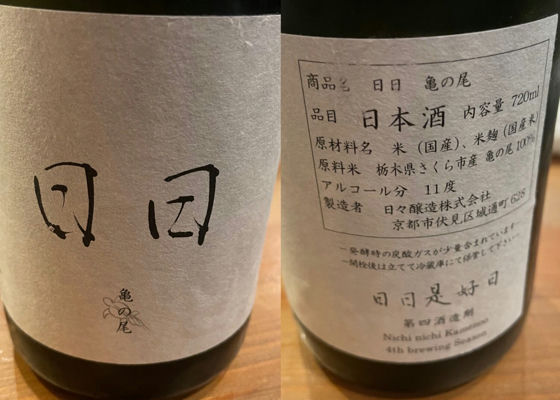 日日
亀の尾
商品名 日日 亀の尾
品目 日本酒 内容量 720ml
原材料名 米(国産)、米麹(国産米)
原料米 栃木県さくら市産 亀の尾100%
アルコール分 11度
製造者 日々醸造株式会社
京都市伏見区城通町628
—発酵時の炭酸ガスが少量含まれています—
—開栓後は立てて冷蔵庫にて保管して下さい—
日日是好日
第四酒造期
Nichi nichi Kamenoo
4th brewing Season